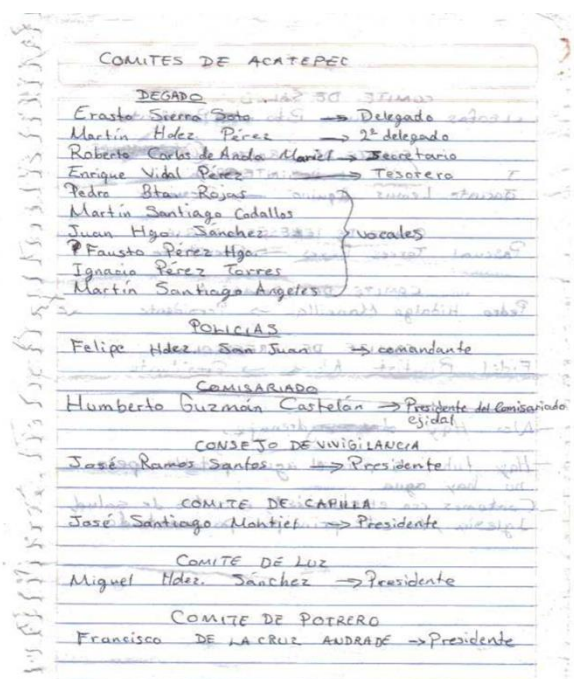 COMITES DE ACATEPEC
DEGADO
Erasto Sierra Soto → Delegado
Martín Hdez Pérez → 2º delegado
Roberto Carlos de Anda Mariel → Secretario
Enrique Vidal Pérez → Tesorero
Pedro Bta Rojas
Martín Santiago Cadallos
Juan Hgo Sánchez vocales
Fausto Pérez Hgo.
Ignacio Pérez Torres
Martín Santiago Angeles
POLICIAS
Felipe Hdez. San Juan → comandante
COMISARIADO
Humberto Guzmán Castelán → Presidente del Comisariado
ejidal
CONSEJO DE VIVIGILANCIA
José Ramos Santos → Presidente
COMITE DE CAPILLA
José Santiago Montiel → Presidente
COMITE DE LUZ
Miguel Hdez. Sánchez → Presidente
COMITE DE POTRERO
Francisco DE LA CRUZ ANDRADE → Presidente